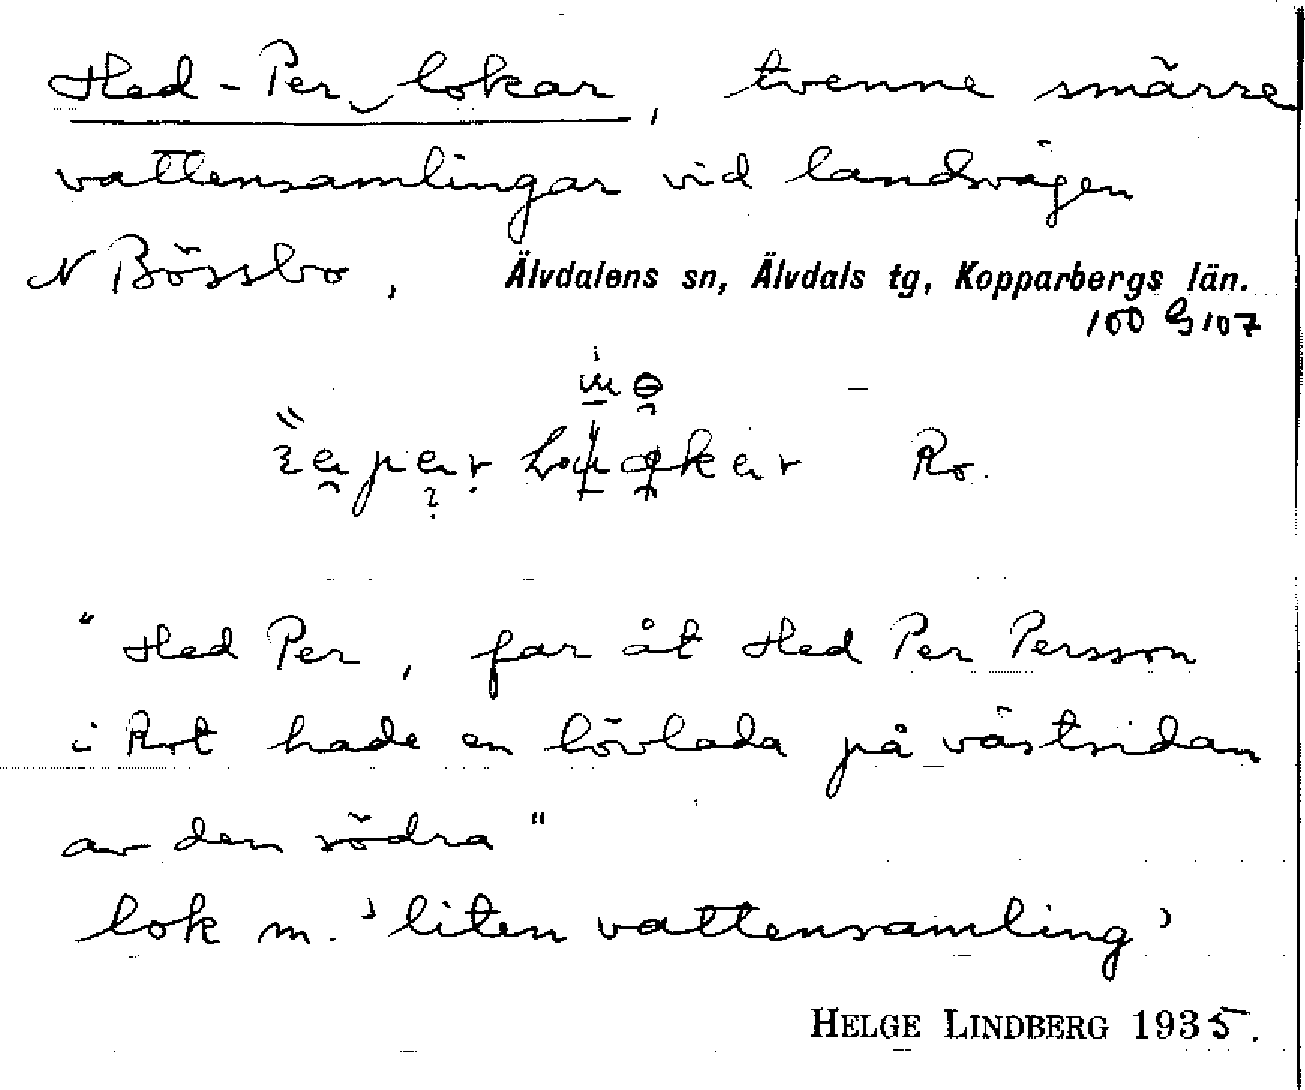 Hed-Per lokar, tvenne smärre
vattensamlingar vid landsvägen
N Bössbo, Älvdalens sn, Älvdals tg, Kopparbergs län.
100 G 107
Ro.
"Hed Per, far åt Hed Per Persson
i Rot hade en lövlada på västsidan
av den södra"
lok m. 'liten vattensamling'
HELGE LINDBERG 1935.